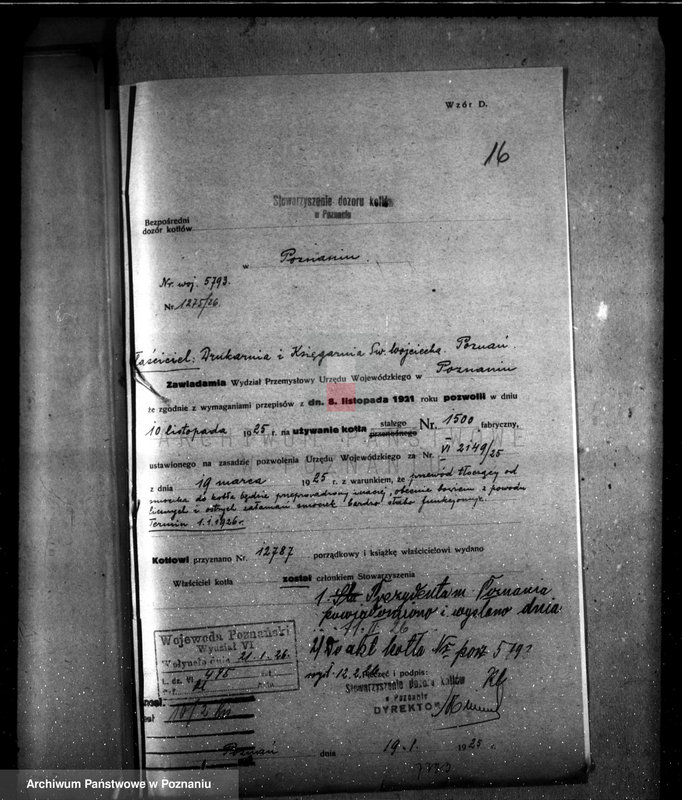 Wzór D.
16
Stowarzyszenie dozoru kotłów
w Poznaniu
Bezpośredni
dozór kotłów
w Poznaniu.
Nr. woj. 5793.
Nr. 1275/26.
Właściciel: Drukarnia i Księgarnia Św. Wojciecha. Poznań.
Zawiadamia Wydział Przemysłowy Urzędu Wojewódzkiego w Poznaniu
że zgodnie z wymaganiami przepisów z dn. 8. listopada 1921 roku pozwolił w dniu
10 listopada 1925 r. na używanie kotła stałego przenośnego Nr. 1500 fabryczny,
ustawionego na zasadzie pozwolenia Urzędu Wojewódzkiego za Nr. VI 2149/25
z dnia 19 marca 1925 r. z warunkiem, że przewód tłoczący od
smoczka do kotła będzie przeprowadzony inaczej, obecnie bowiem z powodu
licznych i ostrych załamań smoczek bardzo słabo funkcjonuje.
Termin 1.1.1926 r.
Kotłowi przyznano Nr. 12787 porządkowy i książkę właścicielowi wydano
Właściciel kotła został członkiem Stowarzyszenia
1. Prezydenta m. Poznania
powiadomiono i wysłano dnia
11.II.26
2) Do akt kotła Nr. porz. 579?
Wojewoda Poznański
Wydział VI
Wpłynęło dnia 21.1.26.
L. dz. VI 475
wysł. 12.2.26
Pieczęć i podpis:
Stowarzyszenie dozoru kotłów
w Poznaniu
DYREKTOR
Poznań dnia 19.1. 1925 r.
ARCHIWUM PAŃSTWOWE
POZNAŃ
Archiwum Państwowe w Poznaniu